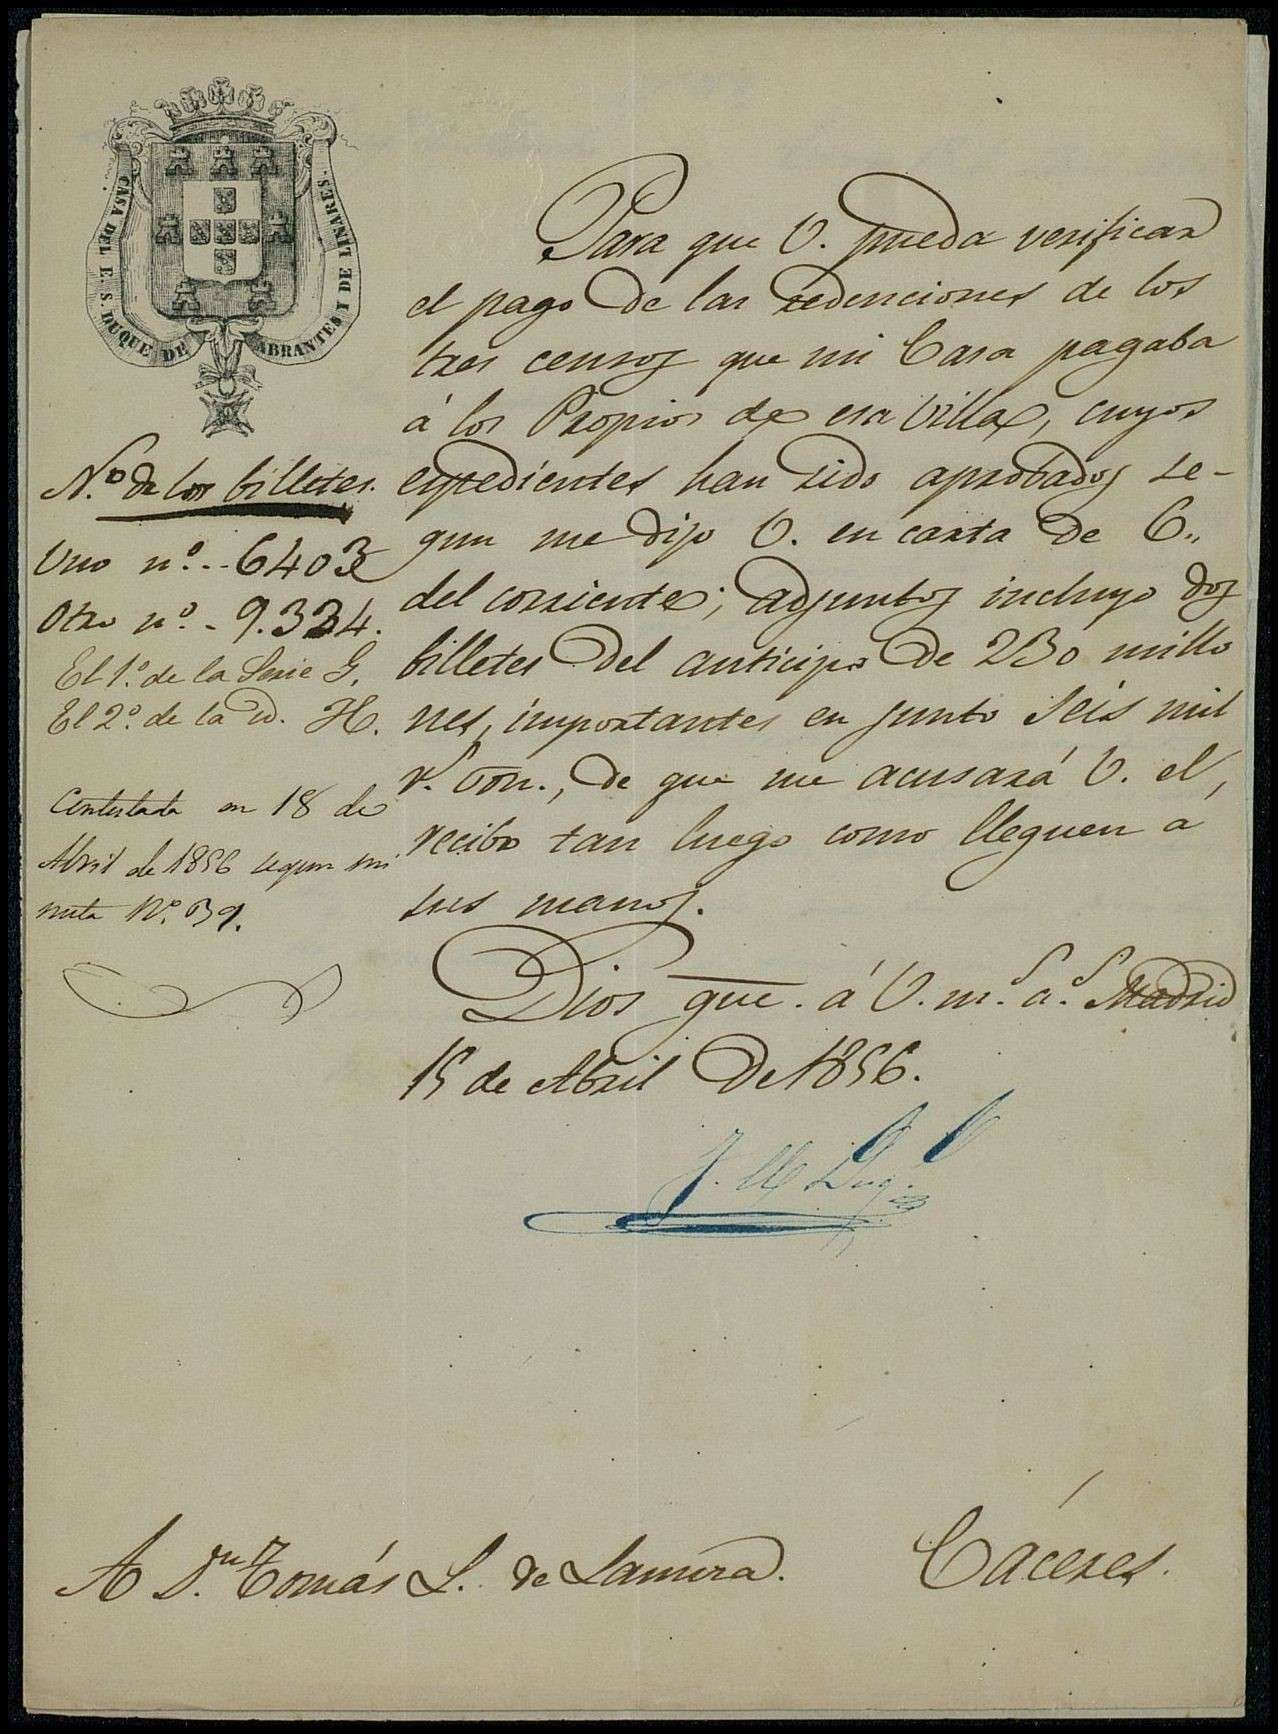 CASA DEL E. S. DUQUE DE ABRANTES Y DE LINARES.
Para que V. pueda verificar
el pago de las redenciones de los
tres censos que mi Casa pagaba
á los Propios de esa Villa, cuyos
expedientes han sido aprobados se-
gun me dijo V. en carta de 6,,
del corriente; adjuntos incluyo dos
billetes del anticipo de 230 millo
nes, importantes en junto seis mil
r.s von., de que me acusará V. el,
recibo tan luego como lleguen a
sus manos.
Dios gue. á V. m.s a.s Madrid
15 de Abril de 1856.
N.o de los billetes.
Uno n.o - 6403
Otro n.o - 9.334.
El 1.o de la Serie G.
El 2.o de la id. H.
Contestada en 18 de
Abril de 1856 segun mi
nuta N.o 39.
A D.n Tomás L. de
Cáceres.